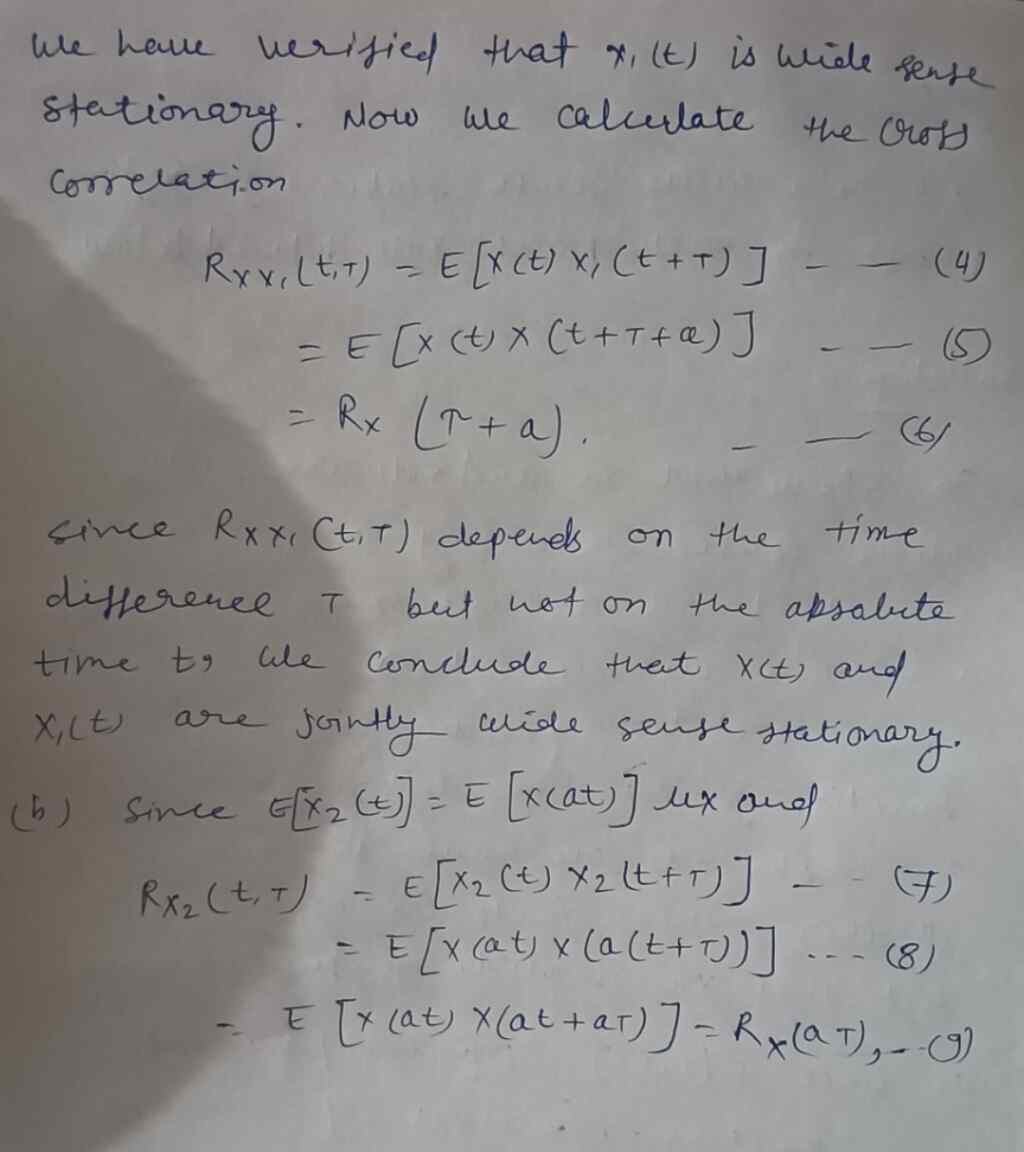 We have verified that X₁(t) is wide sense
stationary. Now we calculate the cross
correlation
R_XX₁(t,τ) = E[X(t) X₁(t+τ)] - - (4)
= E[X(t) X(t+τ+a)] - - (5)
= R_X(τ+a). - - (6)
since R_XX₁(t,τ) depends on the time
difference τ but not on the absalute
time t, we conclude that X(t) and
X₁(t) are jointly wide sense stationary.
(b) Since E[X₂(t)] = E[X(at)] μx and
R_X₂(t,τ) = E[X₂(t) X₂(t+τ)] - - (7)
= E[X(at) X(a(t+τ))] ... (8)
= E[X(at) X(at+aτ)] = R_X(aτ), -- (9)